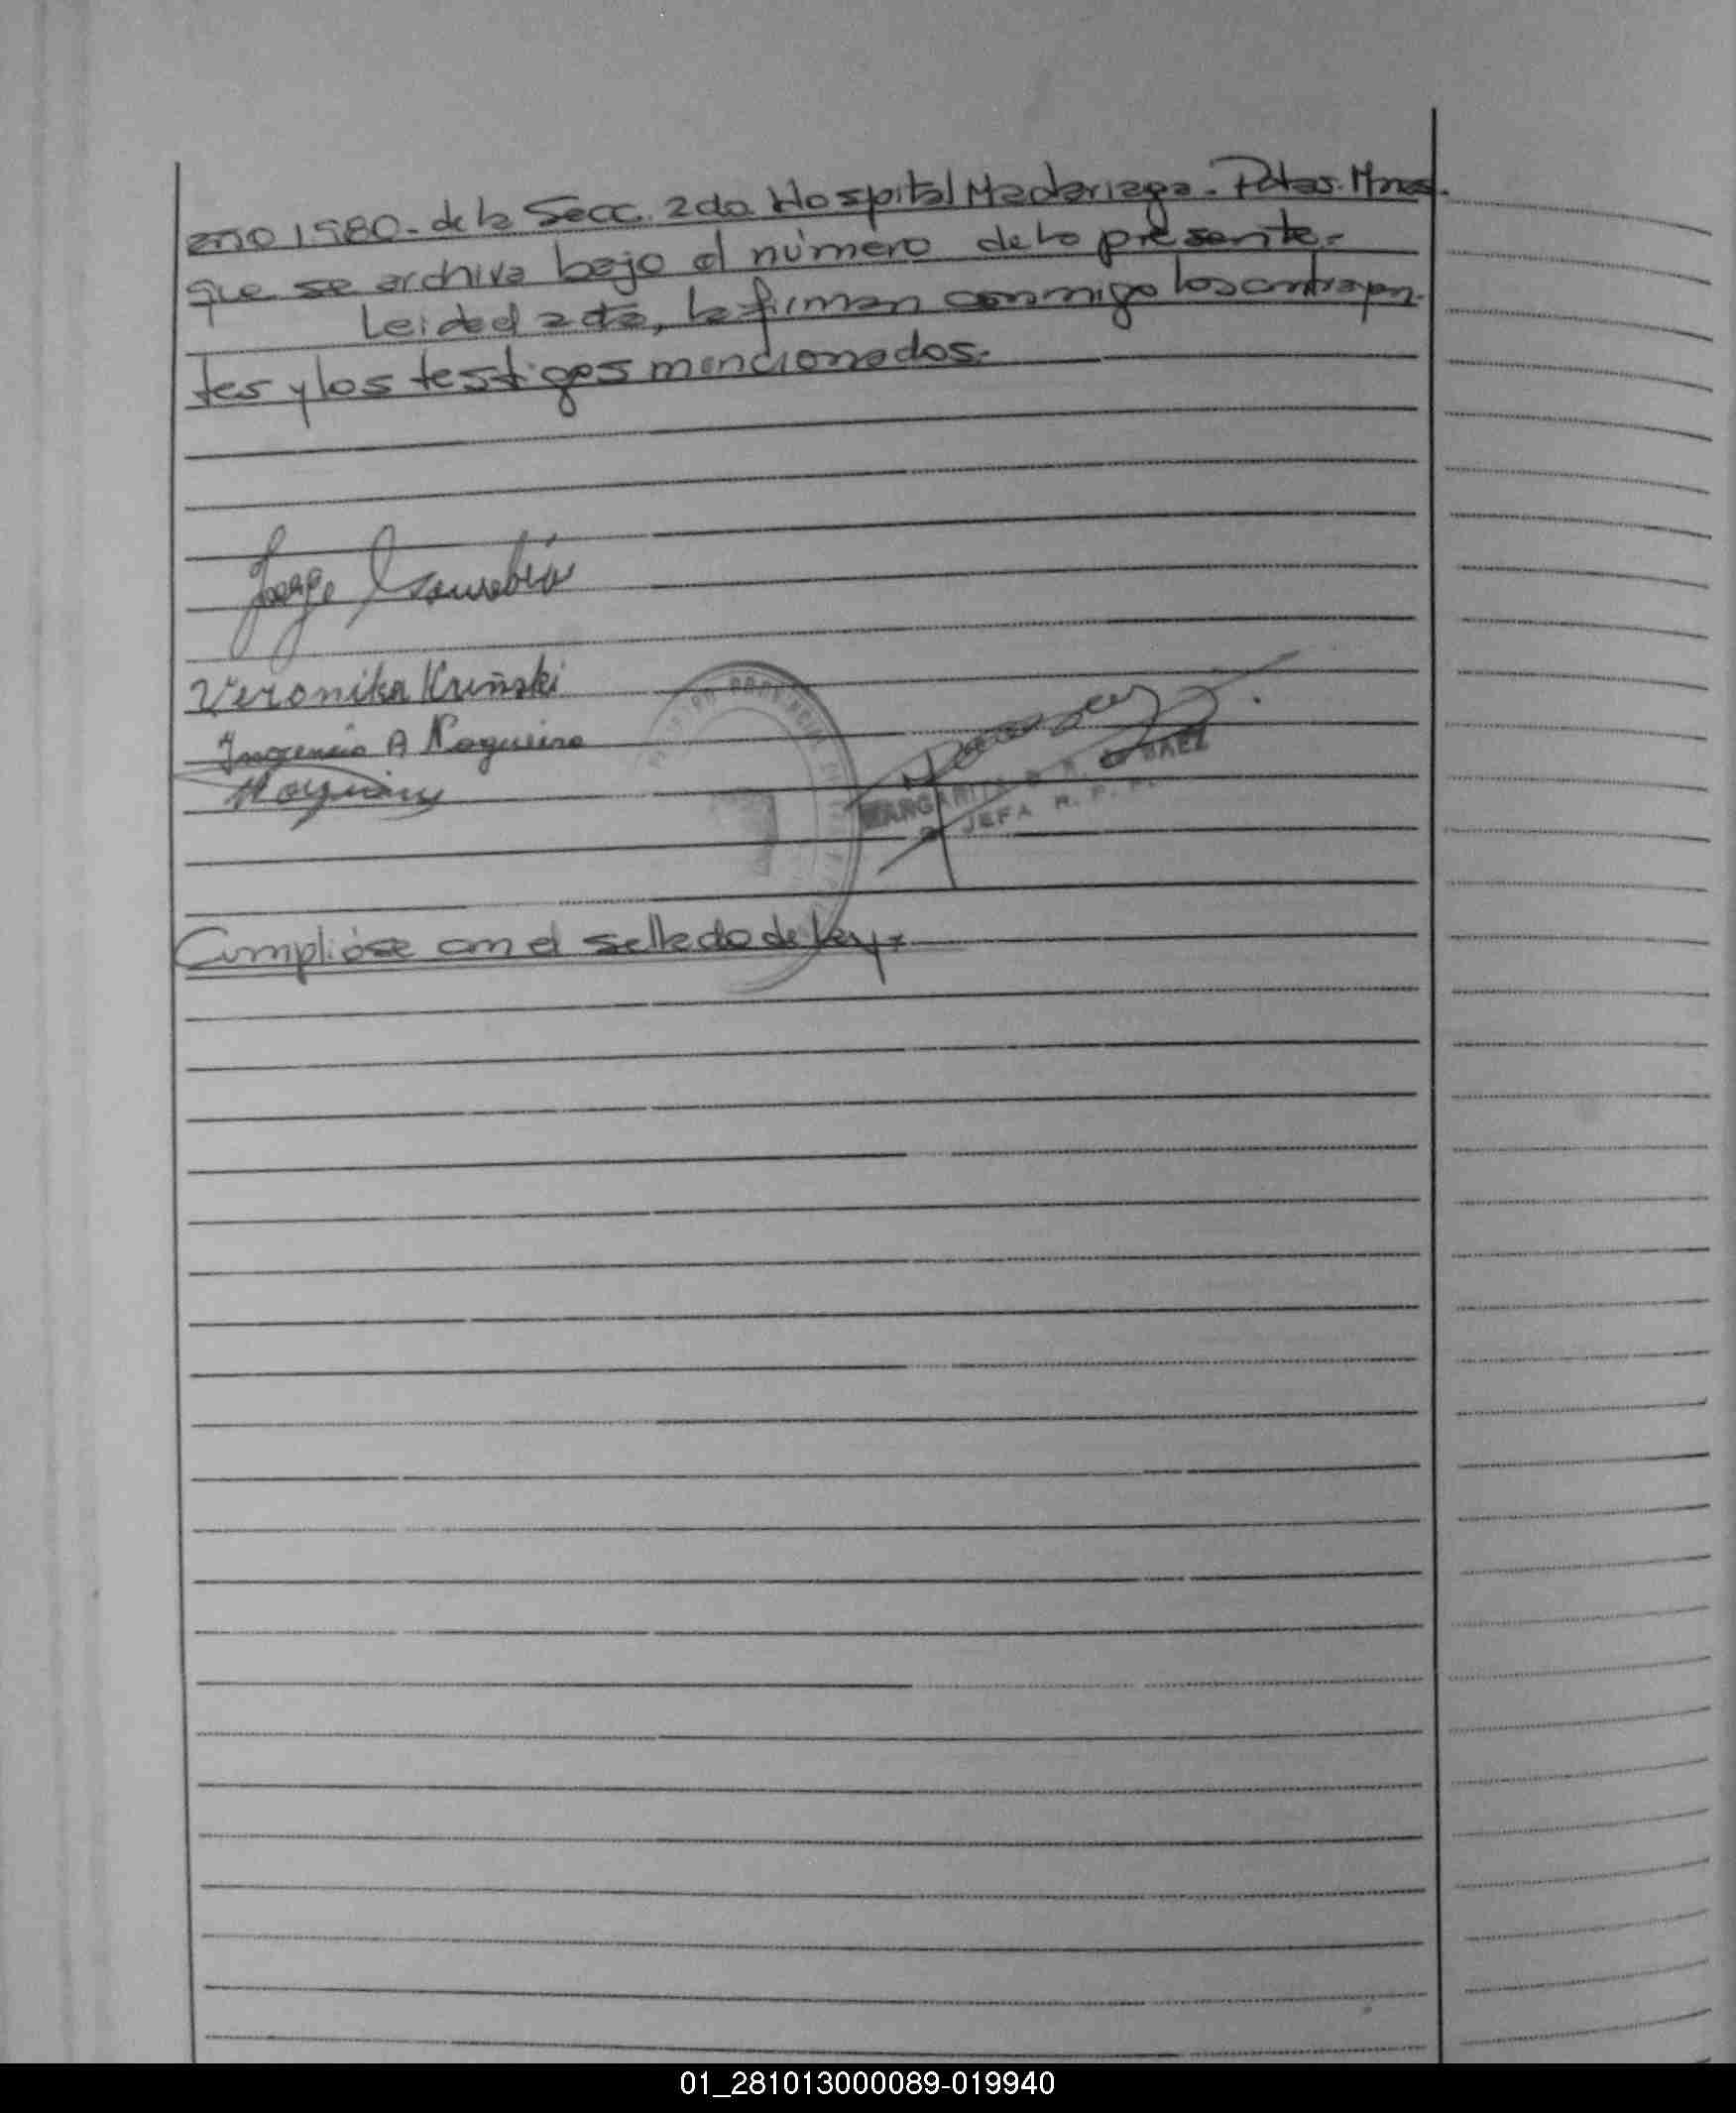 año 1980.- de la Secc. 2da. Hospital Madariaga.- Pdas. Mnes.
que se archiva bajo el número de la presente.-
Leida el acta, la firman conmigo los contrayen-
tes y los testigos mencionados.-
Jorge
Veronika Kriñski
A Nogueira
REGISTRO PROVINCIAL
MARGARITA R. SAEZ
JEFA R. P. P.
Cumplióse con el sellado de Ley.-
01_281013000089-019940